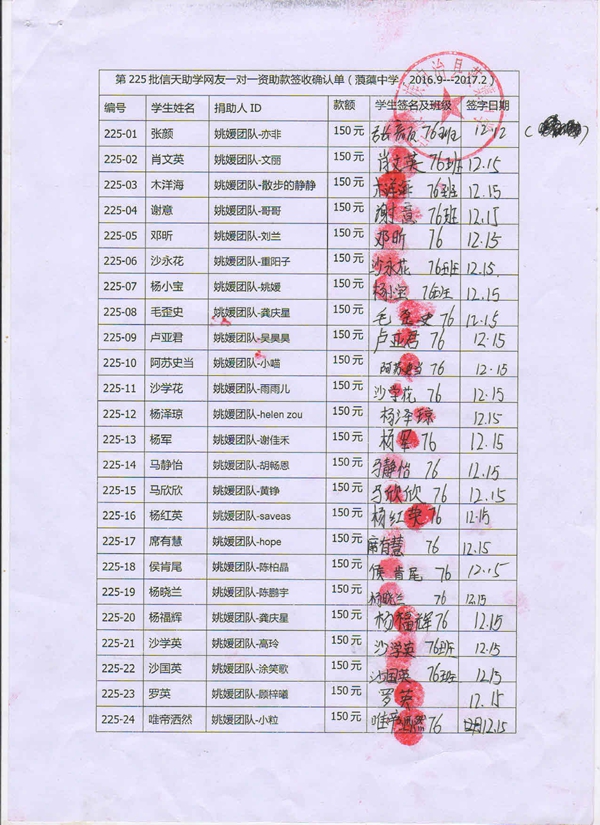 第 225 批信天助学网友一对一资助款签收确认单（蕅蕖中学，2016.9---2017.2）
编号 学生姓名 捐助人 ID 款额 学生签名及班级 签字日期
225-01 张颜 姚媛团队-亦非 150 元 张颜 76班 12.12
225-02 肖文英 姚媛团队-文丽 150 元 肖文英 76班 12.15
225-03 木洋海 姚媛团队-散步的静静 150 元 木洋海 76班 12.15
225-04 谢意 姚媛团队-哥哥 150 元 谢意 76班 12.15
225-05 邓昕 姚媛团队-刘兰 150 元 邓昕 76 12.15
225-06 沙永花 姚媛团队-重阳子 150 元 沙永花 76班 12.15
225-07 杨小宝 姚媛团队-姚媛 150 元 杨小宝 76班 12.15
225-08 毛歪史 姚媛团队-龚庆星 150 元 毛歪史 76 12.15
225-09 卢亚君 姚媛团队-吴昊昊 150 元 卢亚君 76 12.15
225-10 阿苏史当 姚媛团队-小喵 150 元 阿苏史当 76 12.15
225-11 沙学花 姚媛团队-雨雨儿 150 元 沙学花 76 12.15
225-12 杨泽琼 姚媛团队-helen zou 150 元 杨泽琼 12.15
225-13 杨军 姚媛团队-谢佳禾 150 元 杨军 76 12.15
225-14 马静怡 姚媛团队-胡畅恩 150 元 马静怡 76 12.15
225-15 马欣欣 姚媛团队-黄铮 150 元 马欣欣 76 12.15
225-16 杨红英 姚媛团队-saveas 150 元 杨红英 76 12.15
225-17 席有慧 姚媛团队-hope 150 元 席有慧 76 12.15
225-18 侯肯尾 姚媛团队-陈柏晶 150 元 侯肯尾 76 12.15
225-19 杨晓兰 姚媛团队-陈鹏宇 150 元 杨晓兰 76 12.15
225-20 杨福辉 姚媛团队-龚庆星 150 元 杨福辉 76 12.15
225-21 沙学英 姚媛团队-高玲 150 元 沙学英 76班 12.15
225-22 沙国英 姚媛团队-涂笑歌 150 元 沙国英 76班 12.15
225-23 罗英 姚媛团队-顾梓曦 150 元 罗英 12.15
225-24 唯帝洒然 姚媛团队-小粒 150 元 唯帝洒然 76 12.15